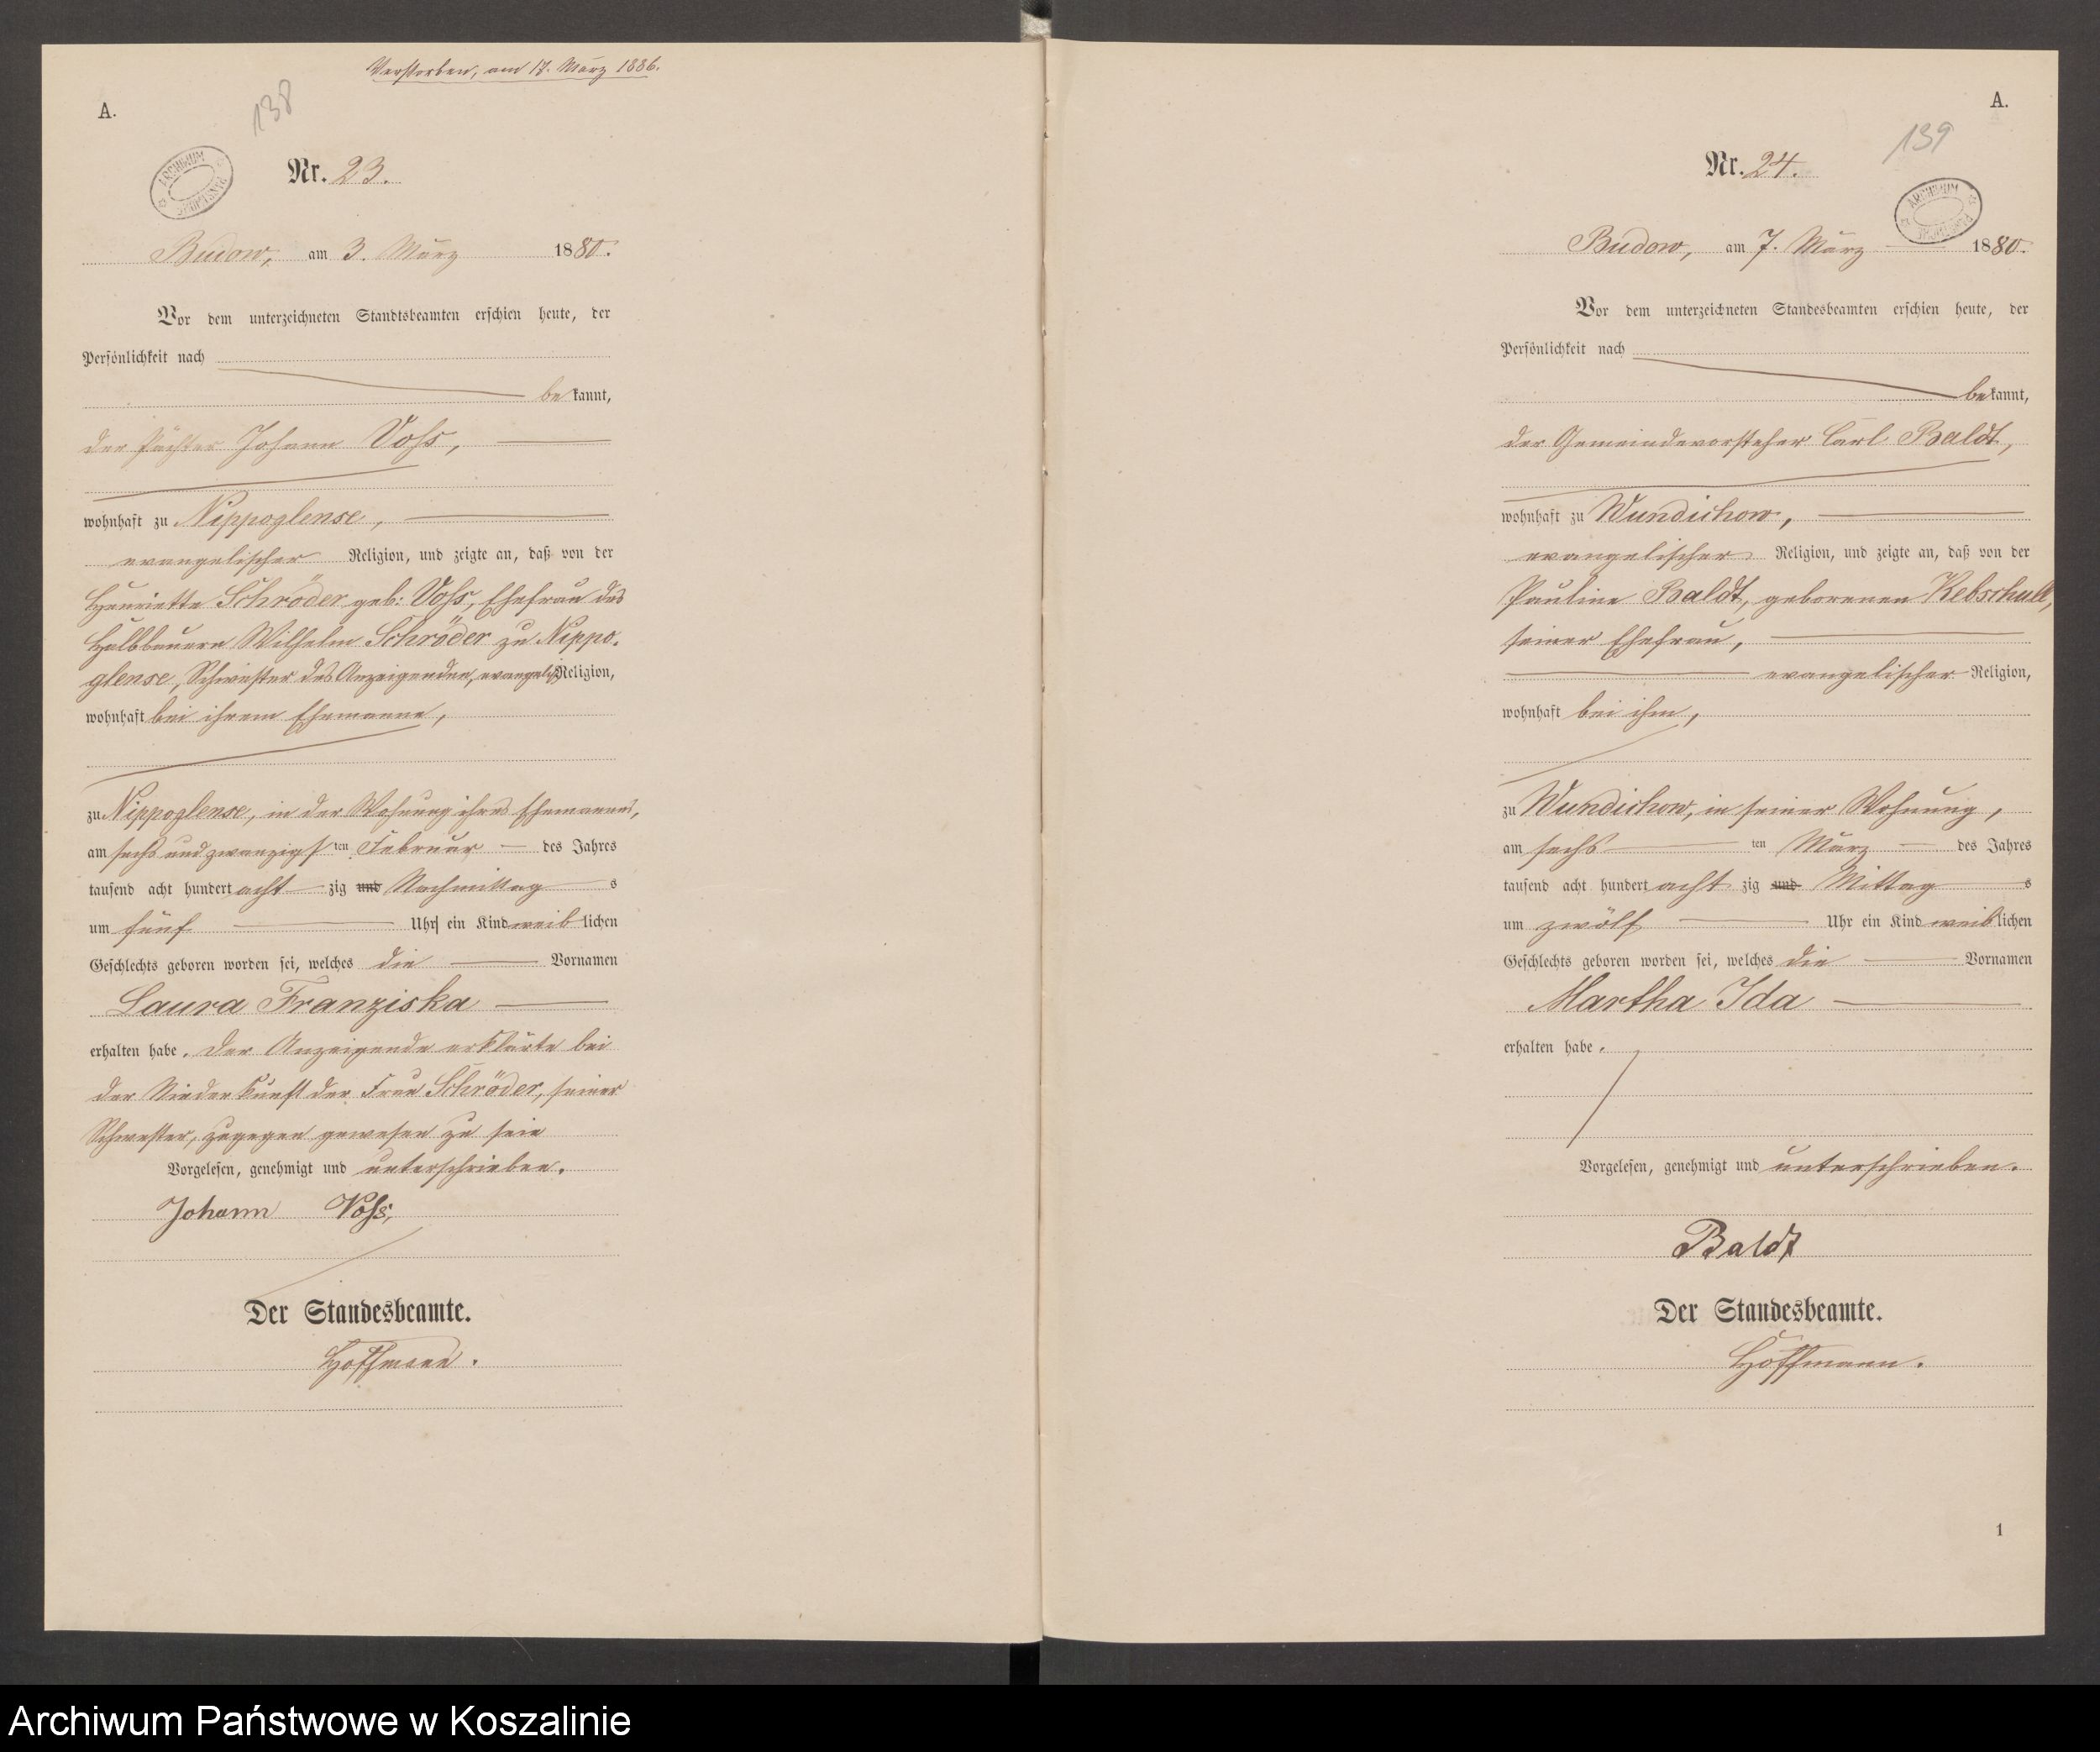 Verstorben, am 17. März 1886.
A.
138
ARCHIWUM PAŃSTWOWE
Nr. 23.
Budow, am 3. März 1880.
Vor dem unterzeichneten Standtsbeamten erschien heute, der
Persönlichkeit nach
bekannt,
der Pächter Johann Voss,
wohnhaft zu Nippoglense,
evangelischer Religion, und zeigte an, daß von der
Henriette Schröder geb: Voss, Ehefrau des
Halbbauern Wilhelm Schröder zu Nippo-
glense, Schwester des Anzeigenden, evangelisch Religion,
wohnhaft bei ihrem Ehemanne,
zu Nippoglense, in der Wohnung ihres Ehemannes,
am sechs und zwanzigsten Februar des Jahres
tausend acht hundert achtzig und Nachmittags
um fünf Uhr ein Kind weiblichen
Geschlechts geboren worden sei, welches die Vornamen
Laura Franziska
erhalten habe. Der Anzeigende erklärte bei
der Niederkunft der Frau Schröder, seiner
Schwester, zugegen gewesen zu sein
Vorgelesen, genehmigt und unterschrieben.
Johann Voss,
Der Standesbeamte.
Hoffmann.
A.
139
Nr. 24.
ARCHIWUM PAŃSTWOWE
Budow, am 7. März 1880.
Vor dem unterzeichneten Standesbeamten erschien heute, der
Persönlichkeit nach
bekannt,
der Gemeindevorsteher Carl Baldt,
wohnhaft zu Wundichow,
evangelischer Religion, und zeigte an, daß von der
Pauline Baldt, geborenen Kebschull,
seiner Ehefrau,
evangelischer Religion,
wohnhaft bei ihm,
zu Wundichow, in seiner Wohnung,
am sechsten März des Jahres
tausend acht hundert achtzig und Mittags
um zwölf Uhr ein Kind weiblichen
Geschlechts geboren worden sei, welches die Vornamen
Martha Ida
erhalten habe.
Vorgelesen, genehmigt und unterschrieben.
Baldt
Der Standesbeamte.
Hoffmann.
1
Archiwum Państwowe w Koszalinie